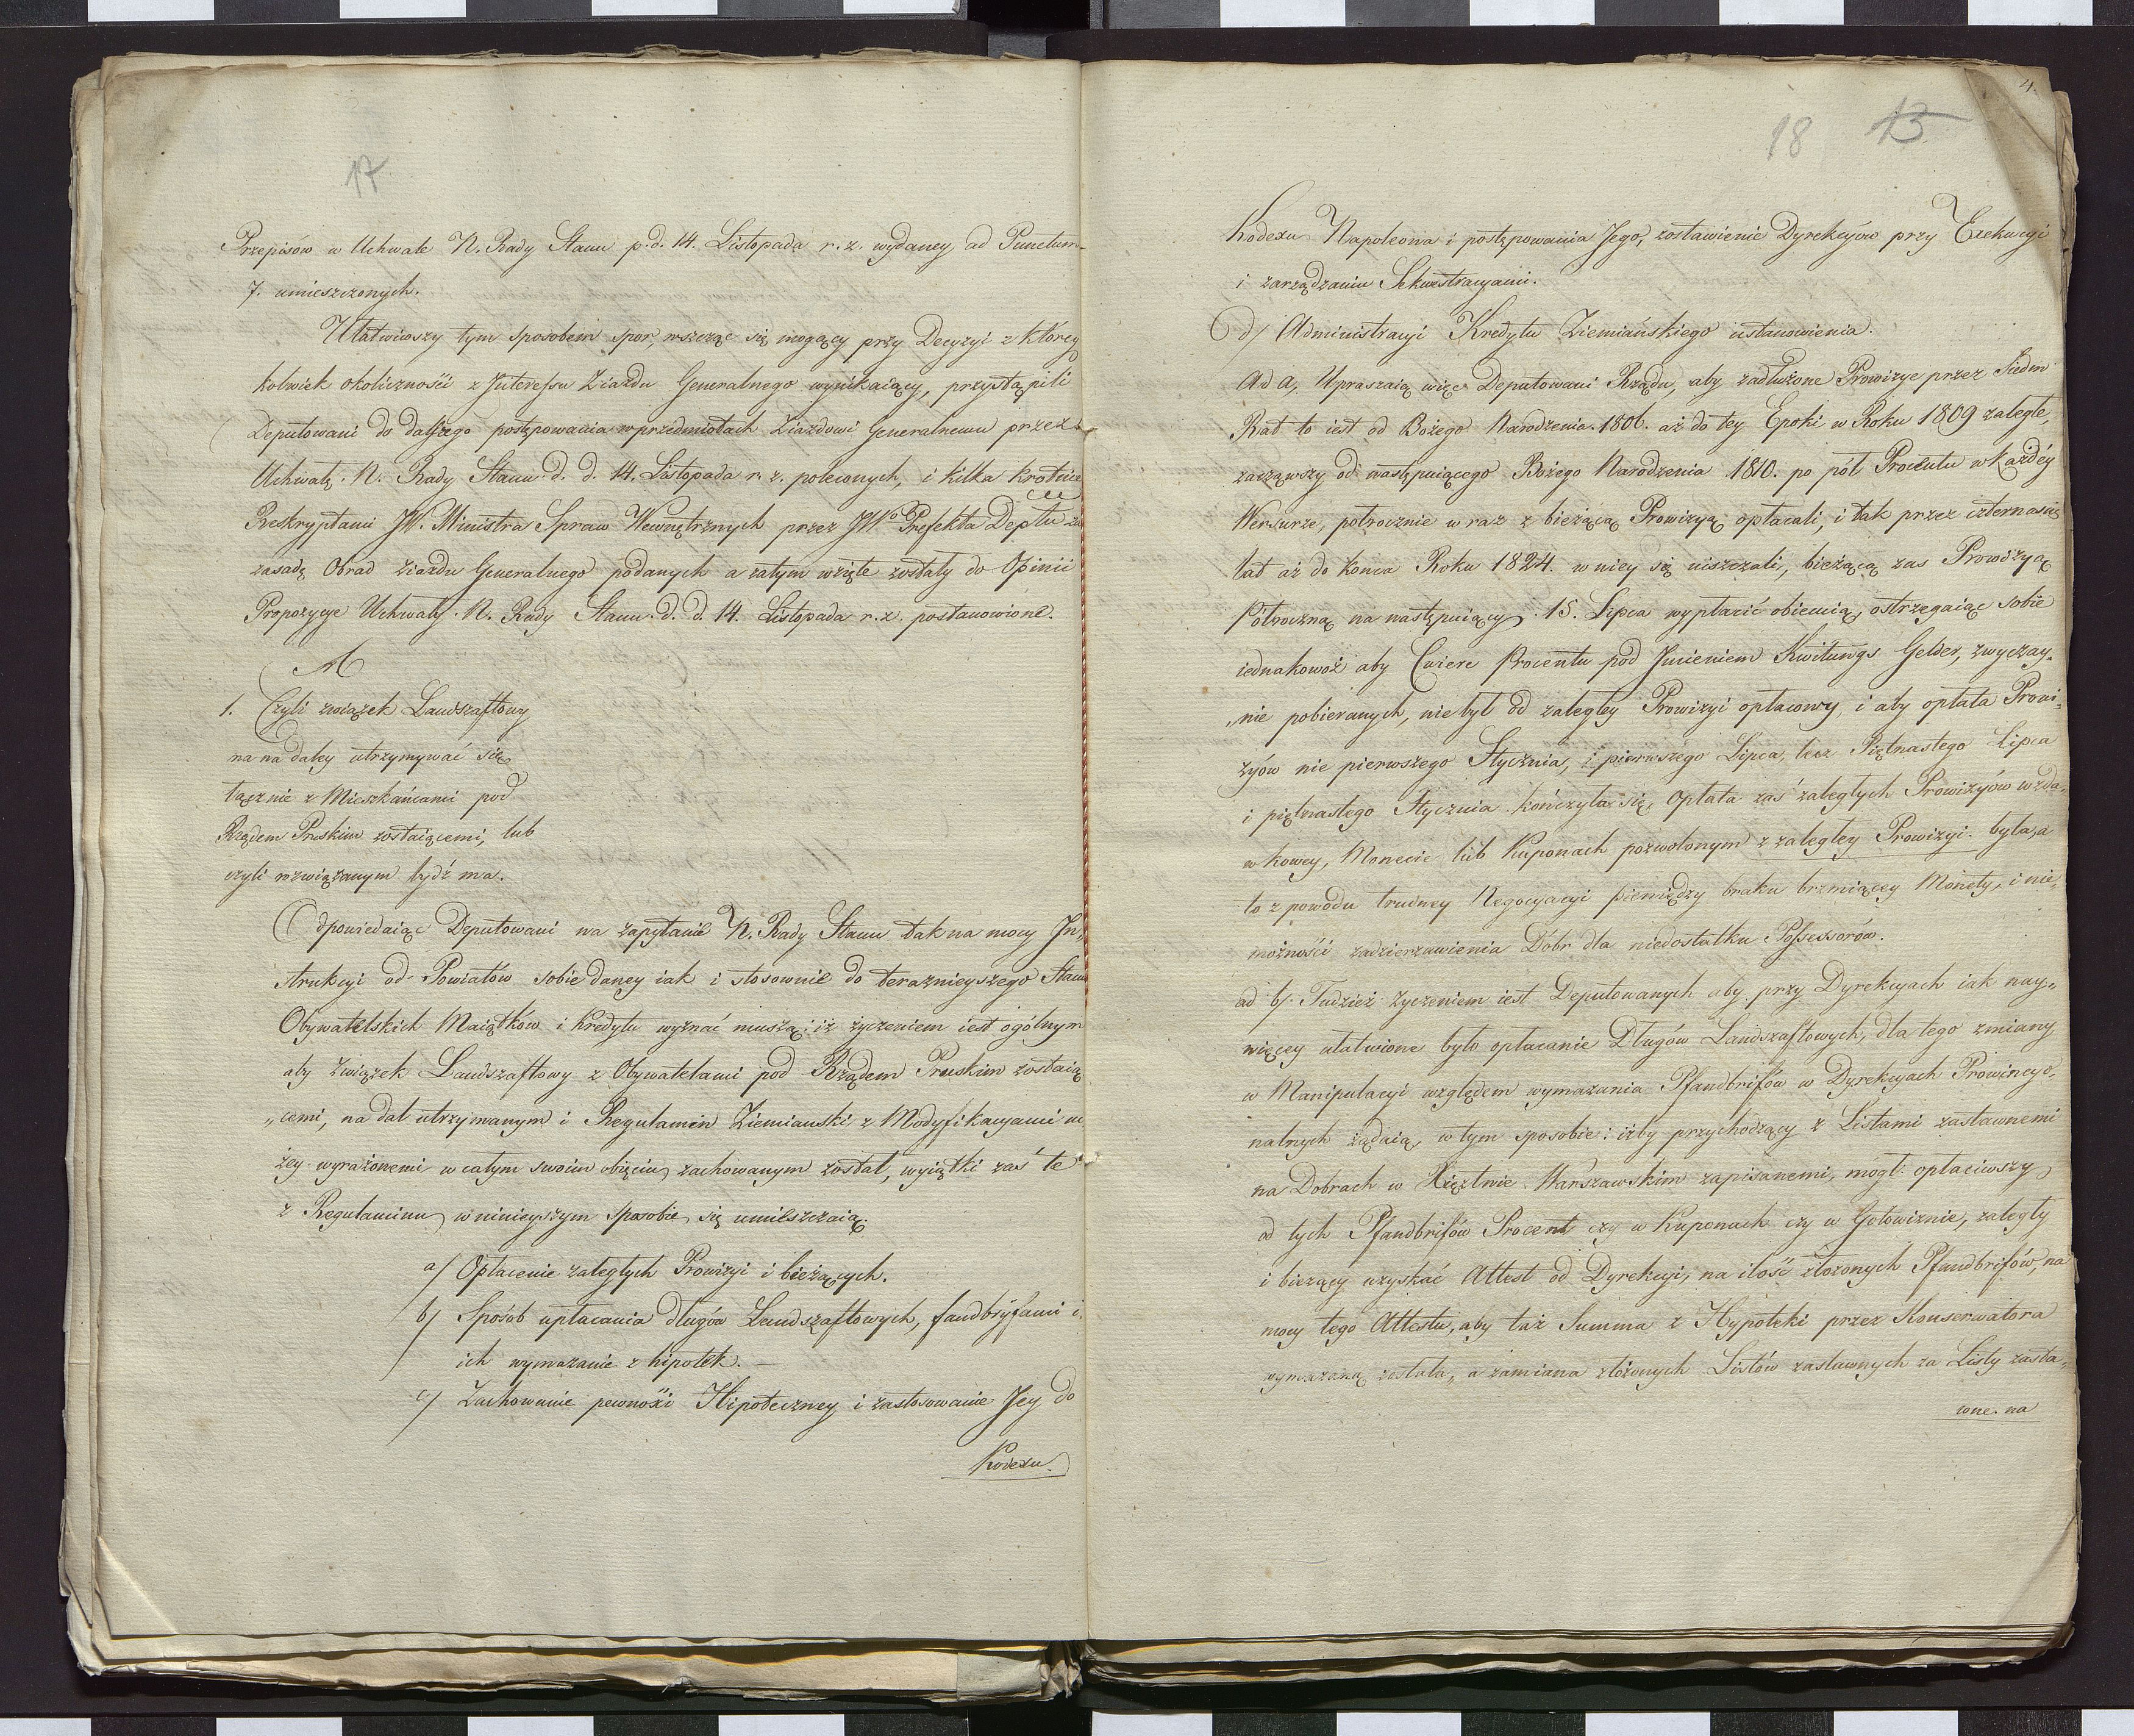 17
Przepisów w Uchwale N. Rady Stanu p. d. 14. Listopada r. z. wydaney, ad Punctum
7. umieszczonych.
Ułatwiwszy tym sposobem spor, wszcząc się mogący przy Decyzyi z którey
kolwiek okoliczności z Interessu Ziazdu Generalnego wynikaiący, przystąpili
Deputowani do dalszego postępowania w przedmiotach Ziazdowi Generalnemu przez
Uchwałę N. Rady Stanu d. d. 14. Listopada r. z. poleconych, i kilka krotnie
Reskryptami JW. Ministra Spraw Wewnętrznych przez JWo Prefekta Deptu za
zasadę Obrad Ziazdu Generalnego podanych a zatym wzięte zostały do Opinii
Propozycye Uchwały N. Rady Stanu d. d. 14. Listopada r. z. postanowione.
A
1. Czyli związek Landszaftowy
na na daley utrzymywać się
łącznie z Mieszkańcami pod
Rządem Pruskim zostaiącemi, lub
czyli rozwiązanym bydź ma.
Odpowiedaiąc Deputowani na zapytanie N. Rady Stanu tak na mocy In„
strukcyi od Powiatów sobie daney iak i stosownie do teraznieyszego Stanu
Obywatelskich Maiątków i Kredytu wyznać muszą: iż życzeniem iest ogólnym
aby związek Landszaftowy z Obywatelami pod Rządem Pruskim zostaią
„cemi, na dal utrzymanym i Regulamin Ziemianski z Modyfikacyami ni
żey wyrażonemi w całym swoim obięciu zachowanym został, wyiątki zaś te
z Regulaminu w ninieyszym sposobie się umieszczaią.
a/ Opłacenie zaległych Prowizyi i bieżących.
b/ Sposób upłacania długów Landszaftowych, fandbryfami i
ich wymazanie z hipotek. —
c/ Zachowanie pewności Hipoteczney i zastosowanie Jey do
Kodexu
4.
18 13
Kodexu Napoleona i postępowania Jego, zostawienie Dyrekcyów przy Exekucyi
i zarządzaniu Sekwestracyami.
d/ Administracyi Kredytu Ziemiańskiego ustanowienia.
Ad a, Upraszaią więc Deputowani Rządu, aby zadłużone Prowizye przez Siedm
Rat to iest od Bożego Narodzenia 1806. aż do tey Epoki w Roku 1809 zaległe,
zacząwszy od następuiącego Bożego Narodzenia 1810. po pół Procentu w każdéy
Wersurze, pułrocznie wraz z bieżącą Prowizyą opłacali, i tak przez czternaście
lat aż do końca Roku 1824. w niey się uiszczali, bieżącą zas Prowizyą
Półroczną na następuiący 15. Lipca wypłacić obiecuią, ostrzegaiąc sobie
iednakowoż aby Cwierć Procentu pod Jmieniem Kwitungs Gelder, zwyczay„
„nie pobieranych, nie był od zaległey Prowizyi opłacowy, i aby opłata Prowi„
zyów nie pierwszego Stycznia, i pierwszego Lipca, lecz Piętnastego Lipca
i piętnastego Stycznia kończyła się, Opłata zaś zaległych Prowizyów w zda„
wkowey, Monecie lub Kuponach pozwolonym z zaległey Prowizyi była, a
to z powodu trudney Negocyacyi pieniędzy braku brzmiącey Monety, i nie„
możności zadzierzawienia Dóbr dla niedostatku Possessorów.
ad b/. Tudzież życzeniem iest Deputowanych aby przy Dyrekcyach iak nay„
więcey ułatwione było opłacanie Długów Landszaftowych, dla tego zmiany
w Manipulacyi względem wymazania Pfandbrifów w Dyrekcyach Prowincyo„
nalnych żądaią, w tym sposobie: iżby przychodzący z Listami zastawnemi
na Dobrach w Xięztwie Warszawskim zapisanemi, mógł opłaciwszy
od tych Pfandbrifów Procent czy w Kuponach czy w Gotowiznie, zaległy
i bieżący uzyskać Attest od Dyrekcyi, na ilość złożonych Pfandbrifów, na
mocy tego Attestu, aby taż Summa z Hypoteki przez Konserwatora
wymazaną została, a zamiana złożonych Listów zastawnych za Listy zasta„
wne na